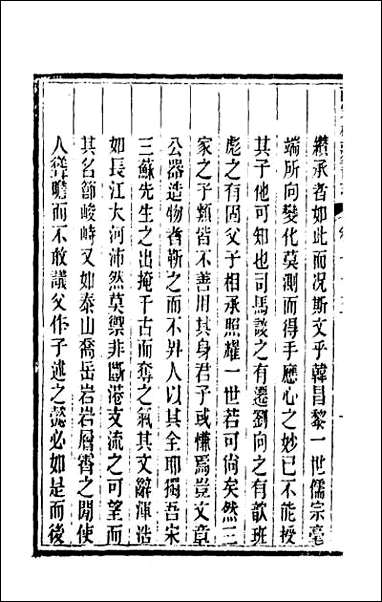 纘承者如此而况斯文乎韓昌黎一世儒宗毫
端所向變化莫測而得手應心之妙已不能授
其子他可知也司馬談之有遷劉向之有歆班
彪之有固父子相承照耀一世若可尚矣然三
家之子類皆不善用其身君子或慊焉豈文章
公器造物者靳之而不畀人以其全耶獨吾宋
三蘇先生之出掩千古而奪之氣其文辭渾浩
如長江大河沛然莫禦非斷港支流之可望而
其名節峻峙又如泰山喬岳岩岩層霄之閒使
人聳瞻而不敢議父作子述之懿必如是而後